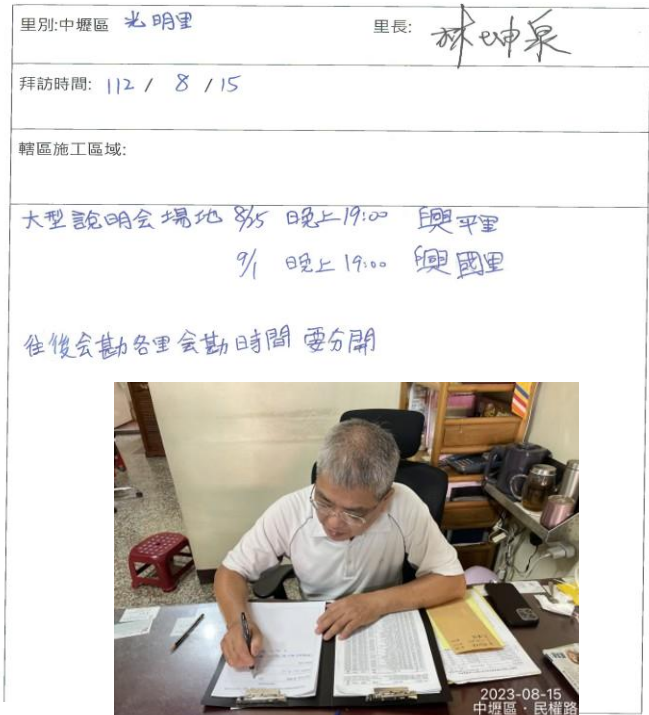 里別:中壢區 光明里 里長: 林坤泉
拜訪時間: 112 / 8 / 15
轄區施工區域:
大型說明会場地 8/25 晚上19:00 興平里
9/1 晚上19:00 興國里
往後会勘各里会勘時間 要分開
2023-08-15
中壢區・民權路